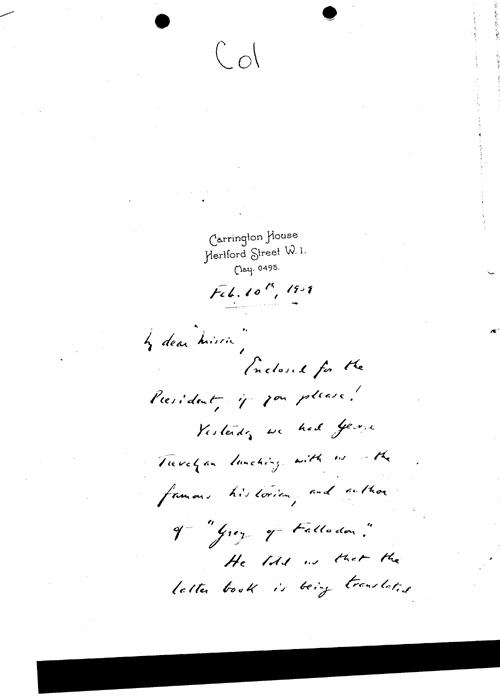 Col
Carrington House
Hertford Street W. 1.
May. 0495.
Feb. 10th, 1939
My dear "Missie",
Enclosed for the
President, if you please!
Yesterday we had George
Trevelyan lunching with us - the
famous historian, and author
of "Grey of Fallodon."
He told us that the
latter book is being translated